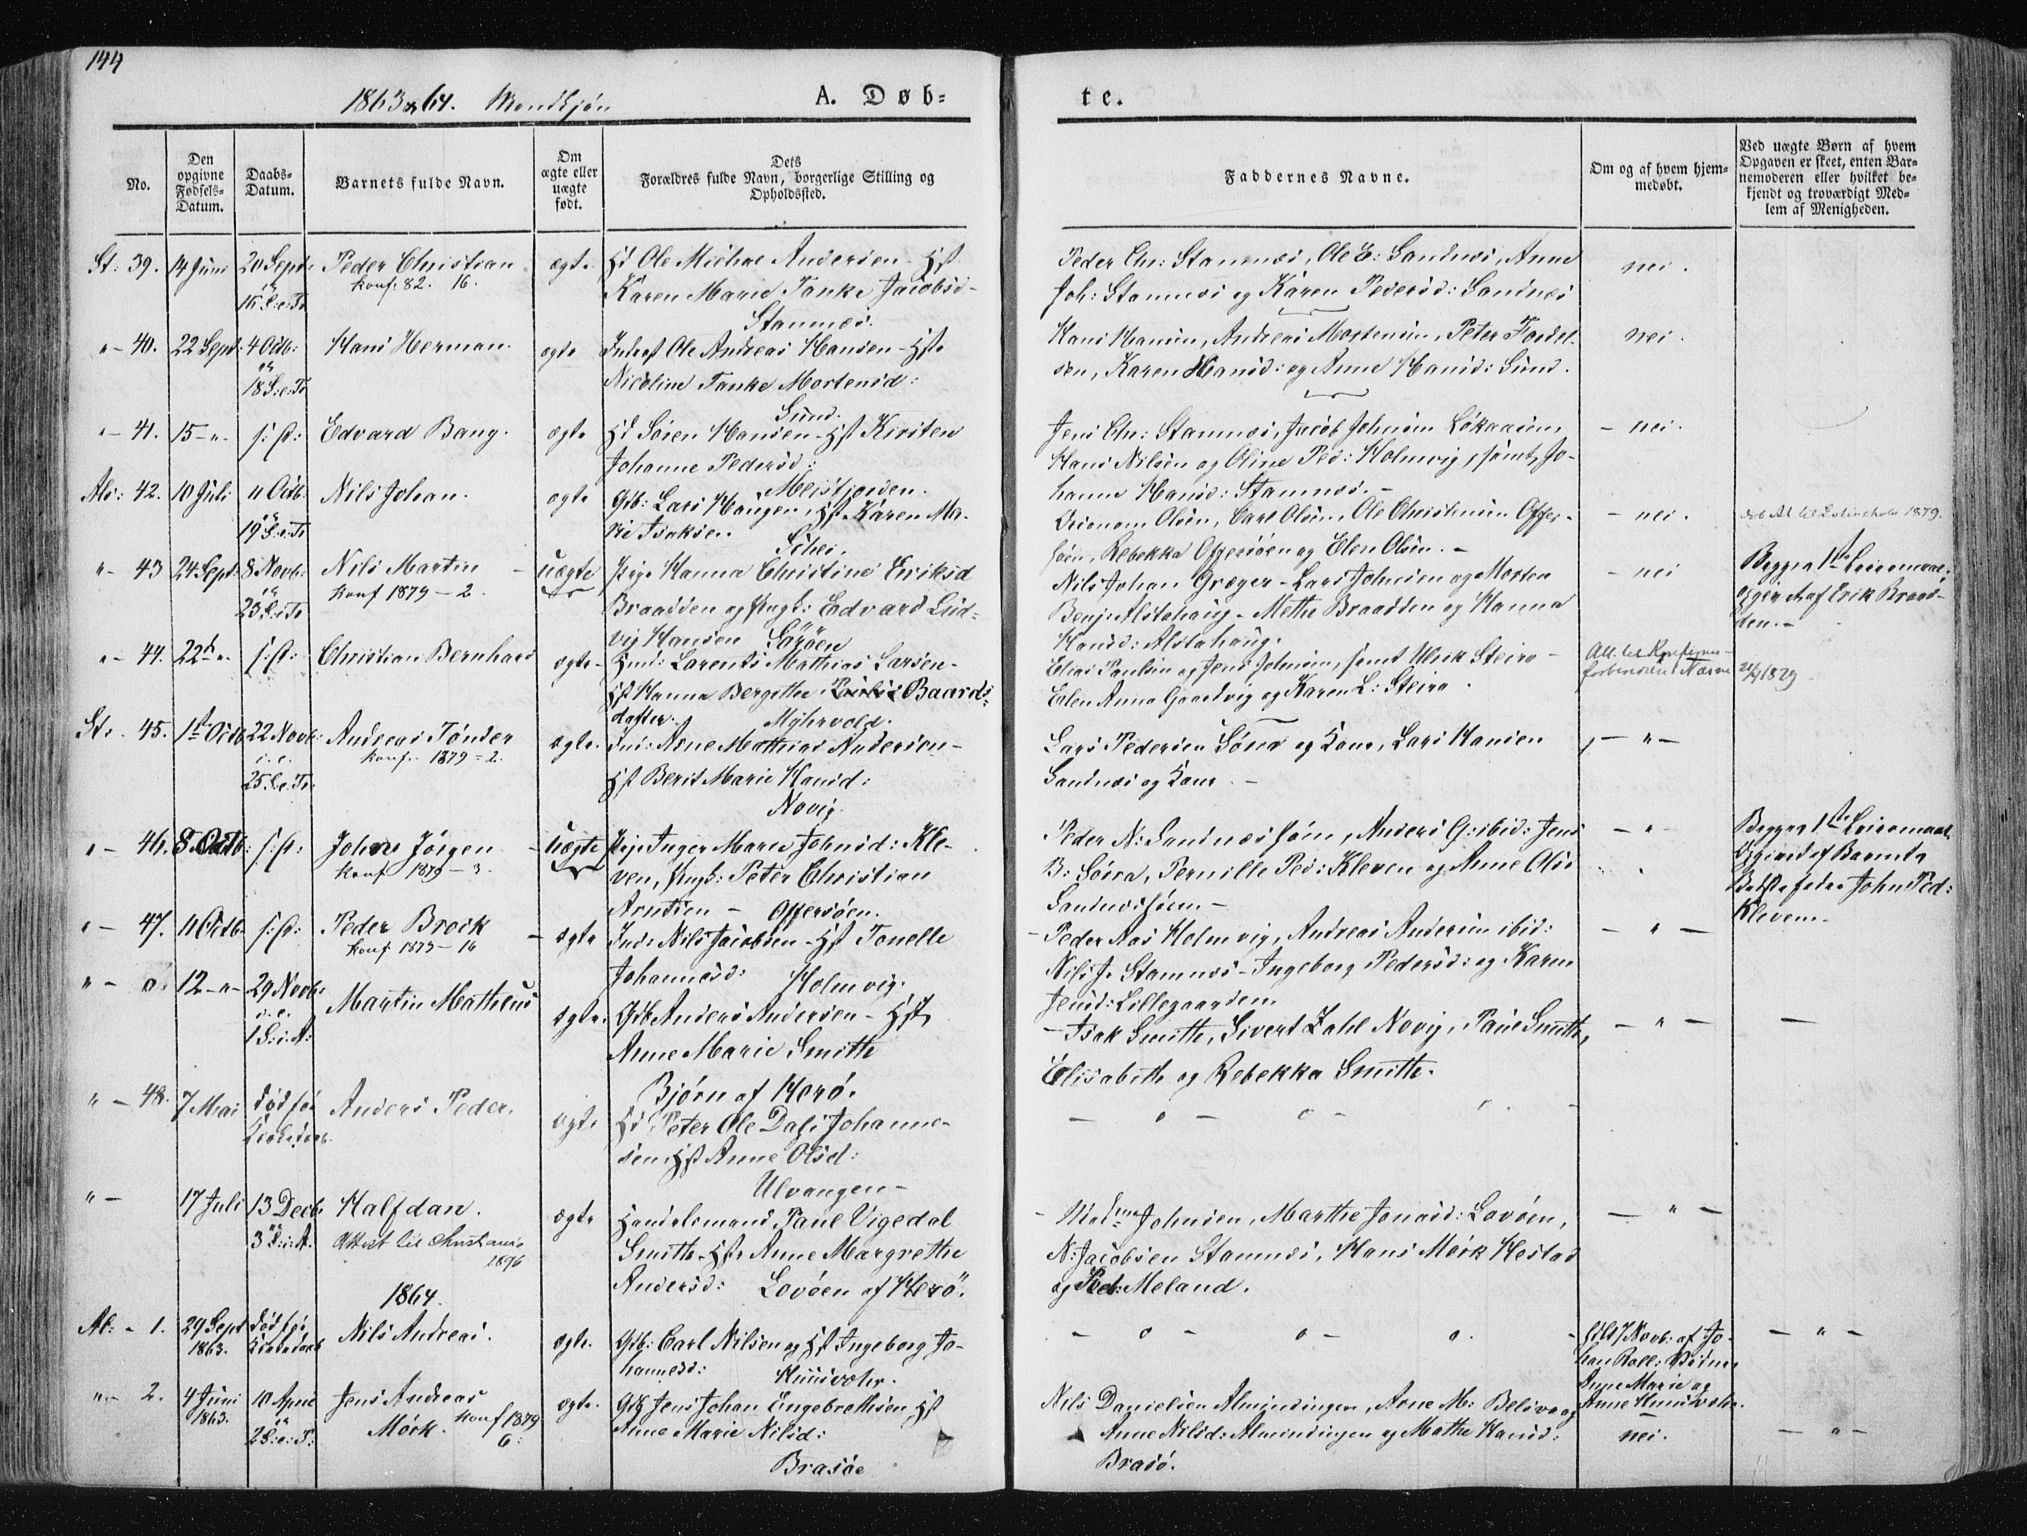 144
1863 & 64. Mandkjøn
A. Døb-
te.
No.
Den opgivne Fødsels-Datum.
Daabs-Datum.
Barnets fulde Navn.
Om ægte eller uægte født.
Dets Forældres fulde Navn, borgerlige Stilling og Opholdssted.
Faddernes Navne.
Om og af hvem hjemmedøbt.
Ved uægte Børn af hvem Opgaven er skeet, enten Barnemoderen eller hvilket bekjendt og troværdigt Medlem af Menigheden.
St: 39. 14 Juni 20 Sept: Peder Christian ægte Ole Michal Andersen Hst
16 S.e.Tr. konf. 82. 16. Karen Marie Tanke Jacobsd-
Stamnes.
Peder Chr: Stamnes, Ole E: Sandnes, Anne
Joh: Stamnes og Karen Pedersd: Sandnes
nei.
"- 40. 22 Sept: 4 Octb: Hans Herman. ægte Inderst Ole Andreas Hansen - Hst
18 S.e.Tr Nicoline Tanke Mortensd:
Sund.
Hans Hansen, Andreas Mortensen, Peter
sen, Karen Hansd: og Anne Hansd: Sund.
nei.
"- 41. 15 - "- s: D: Edvard Bang. ægte Søren Hansen - Hst Kirsten
Johanne Pedersd:
Meisfjorden.
Jens Chr: Stamnes, Jacob Johnsen
Hans Nilsen og Oline Ped: Holmvig, samt Jo-
hanne Hansd: Stamnes. -
- nei.
Als: 42. 10 Juli 11 Octb. Nils Johan. ægte Gdb: Lars Haugen, Hst Karen Ma-
19 S.e.Tr rie Isaksen.
Olsen, Carl Olsen, Ole Christensen Offer-
søen, Rebekka Offersøen og Elen Olsen. -
- nei.
1879.
"- 43 24 Sept: 8 Novb: Nils Martin - uægte Pige Hanna Christine Eriksd
23 S.e.Tr konf 1879 - 2. Braadden og Ungk: Edvard Lud-
vig Hansen Sørøen
Nils Johan Græger - Lars Johnsen og Morten
Benj: Alstahaug - Methe Braadten og Hanna
Hansd: Alstahaug.
- nei
Begges 1ste Leiermaal,
opgivet af Erik Braad-
den. -
"- 44. 22 d "- s: D: Christian Bernhard ægte - Lorents Mathias Larsen -
Hst Hanna Bergethe Baards-
datter. Myhrvold.
Elias Paulsen og Jens Johnsen, samt Ulrik Steiro -
Elen Anna Gaasvig og Karen L: Steiro.
1879
St: 45. 1st Octb 22 Novb: Andreas Tønder ægte. Ind: Arne Mathias Andersen -
25 S.e.Tr. konf. 1879 - 2. Hst Berit Marie Hansd:
Novig.
Lars Pedersen Søvra og Kone, Lars Hansen
Sandnes og Kone. -
- " -
"- 46. 8 Octb: s: D: Johan Jørgen - uægte Pige Inger Maren Johnsd: Kle-
konf 1879 - 3. ven, Ungk: Peter Christian
Arntsen - Offersøen.
Peder N: Sandnessøen, Anders G: ibid: Jens
B: Søvra, Pernille Ped: Kleven og Anne Ols:
Sandnessøen. -
- "
Begges 1ste Leiermaal
Opgivet af Barnets
Bedstefader John Ped:
Kleven.
"- 47. 11 Octb. s: D: Peder Brock - ægte Ind: Nils Jacobsen - Hst Tonelle
konf 1879 - 16 Johannesd: Holmvig.
- Peder Aas Holmvig, Andreas Andersen ibid:
Nils J. Stamnes - Ingeborg Pedersd: og Karen
Jensd: Lillegaarden.
- " -
"- o. 12 - "- 29 Novb: Martin Matheus ægte. Gdb Anders Andersen - Hst
1 S.i.A: Anne Marie Smith
Bjørn af Herø.
- Isak Smith, Sivert Zahl Novig, Paul Smith,
Elisabeth og Rebekka Smith.
- " - -
"- 48. 7 Mai død før Anders Peder. ægte Peter Ole Dass Johanne-
Kirkedaab. sen Hst Anne Olsd:
Ulvangen -
- o - o -
"- 17 Juli 13 Decb Halfdan. ægte Handelsmand, Paul Vigedal
3 S.i.A. Attest til Christiania Smith - Hst Anne Margrethe
1896 Andersd: Lovøen af Herø.
Johnsen, Marthe Jonasd: Lovøen,
N: Jacobsen Stamnes, Hans Mørk Hestad
og Ped: Meland.
- " -
1864.
Al: - 1. 29 Sept 1863. død før Kirkedaab Nils Andreas. ægte. Gdb: Carl Nilsen og Hst Ingeborg Jo-
hannesd:
- o o o. -
17 Novb: af Jo-
Anne Marie og
Anne
- " -
"- 2. 4 Juni 1863. 10 April Jens Andreas ægte. Gdb Jens Johan Engebrethsen Hst
2 S:e:P: Mørk. konf 1879 6: Anne Marie Nilsd:
Brasøe
Nils Danielsen Almindingen, Arne M: Belsvaag
Anne Nilsd: Almindingen og Mathe Hansd:
Brasø.
nei.
- " -